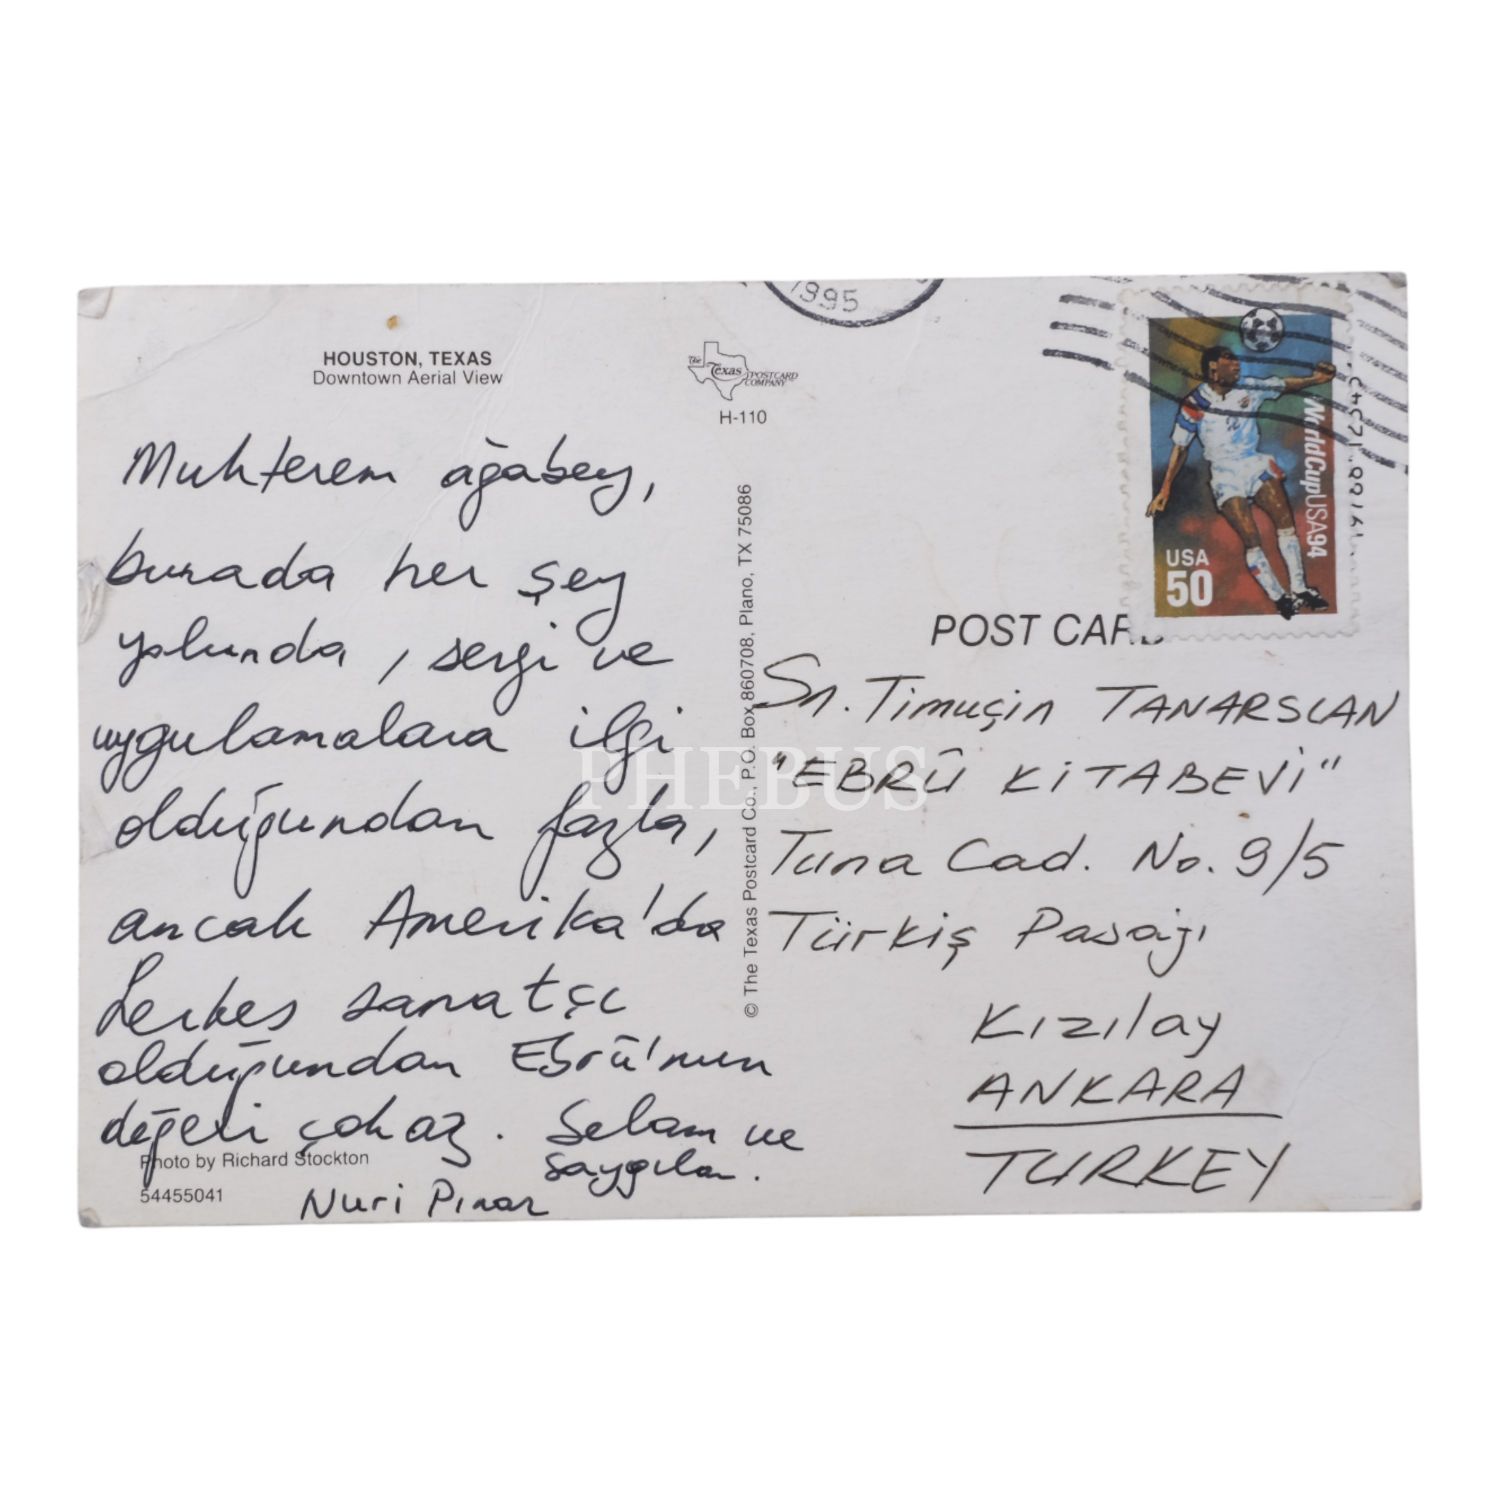 HOUSTON, TEXAS
Downtown Aerial View
Muhterem ağabey,
burada her şey
yolunda, sergi ve
uygulamalara ilgi
olduğundan fazla,
ancak Amerika'da
herkes sanatçı
olduğundan Ebrû'nun
değeri çok az. Selam ve
saygılar.
Nuri Pınar
Photo by Richard Stockton
54455041
1995
The Texas POSTCARD COMPANY
H-110
© The Texas Postcard Co., P.O. Box 860708, Plano, TX 75086
WorldCupUSA94
USA
50
POST CARD
Sn. Timuçin TANARSLAN
"EBRÛ KİTABEVİ"
Tuna Cad. No. 9/5
Türkiş Pasajı
Kızılay
ANKARA
TURKEY
PHEBUS